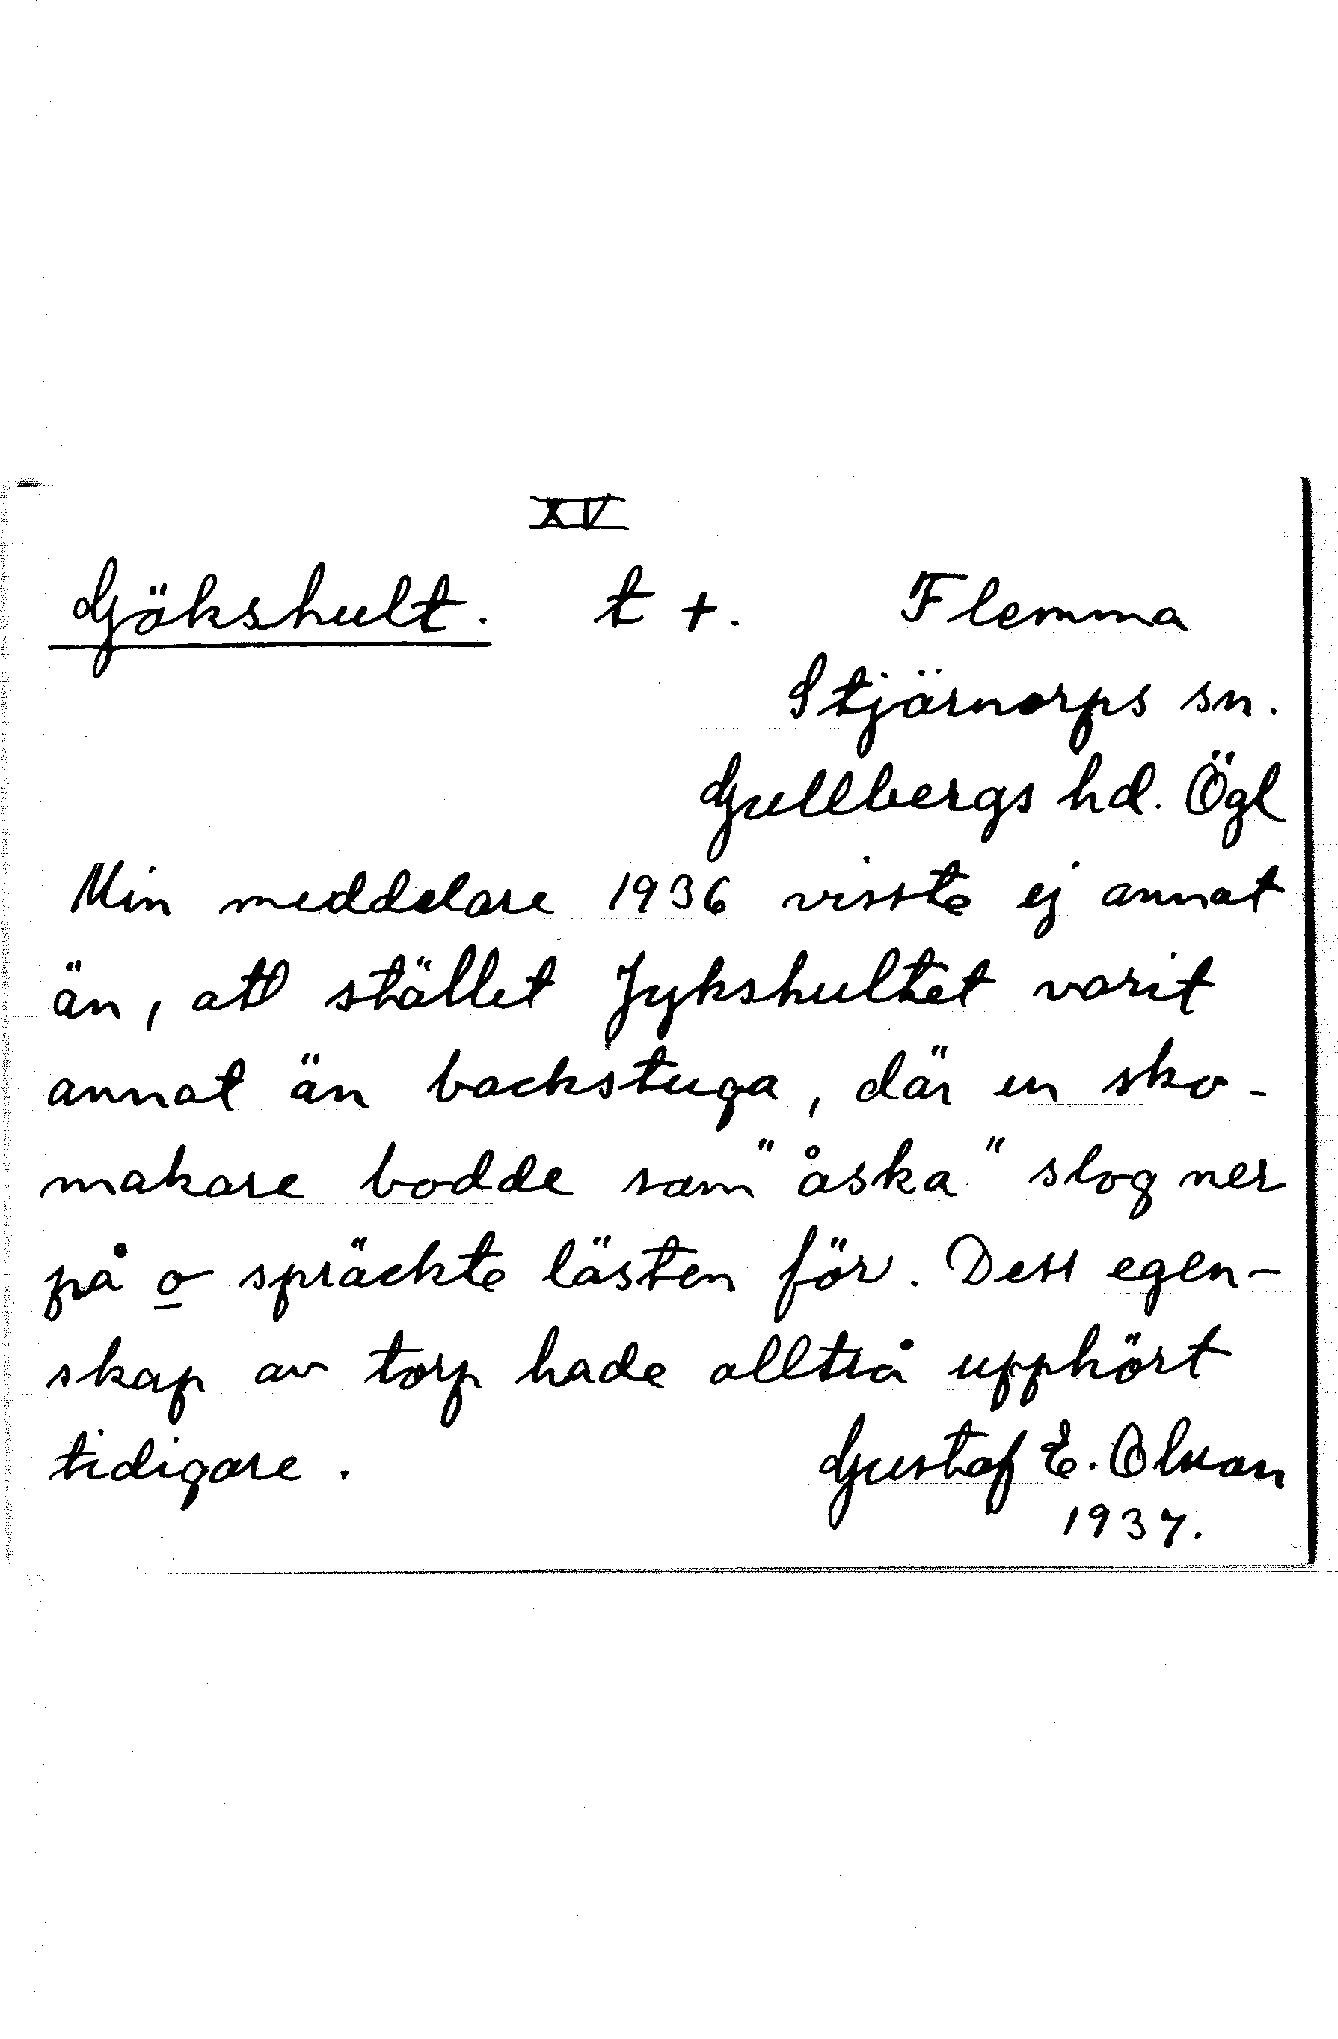 XV
Gökshult. t +. Flemma
Stjärnorps sn.
Gullbergs hd. Ögl
Min meddelare 1936 visste ej annat
än, att stället Jykshultet varit
annat än backstuga, där en sko-
makare bodde som "åska" slog ner
på o spräckte lästen för. Dess egen-
skap av torp hade alltså upphört
tidigare. Gustaf E. Olsson
1937.